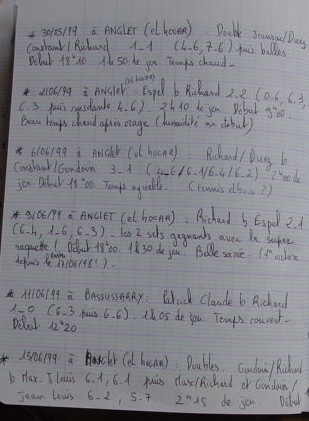 * 30/05/99 à ANGLET (el HOGAR) : Double
Constant / Richard 1_1 (4-6, 7-6) puis balles
Début 18"10. 1"50 de jeu. Temps chaud_
* 2/06/99 à ANGLET (el HOGAR) : Espel b Richard 2-2 (0-6, 6.3,
6.3 puis 4-6)_ 2"10 de jeu. Début 9"00_
Beau temps chaud après orage (humidité au début)
* 6/06/99 à ANGLET (el HOGAR) : Richard / b
Constant / Gondoin 3_1 (4-6/6-1/6-4/6-2) 2"00 de
jeu. Début 18"00. Temps agréable. (tennis elbow ?)
* 9/06/99 à ANGLET (el HOGAR) : Richard b Espel 2_1
(6-4, 1-6, 6-3) _ les 2 sets gagnants avec la
raquette ! Début 18"00. 1"30 de jeu. Belle soirée_ (1ère victoire
depuis le 17/06/98 !)_
* 11/06/99 à BASSUSSARRY : Patrick Claude b Richard
1_0 (6-3 puis 6-6)_ 1"05 de jeu Temps couvert_
Début 12"20
* 13/06/99 à Anglet (el HOGAR) : Doubles. Gondoin/Richard
b Max. J. Louis 6_1, 6_1 puis Max/Richard et Gondoin/
Jean Louis 6_2, 5-7 2"15 de jeu. Début